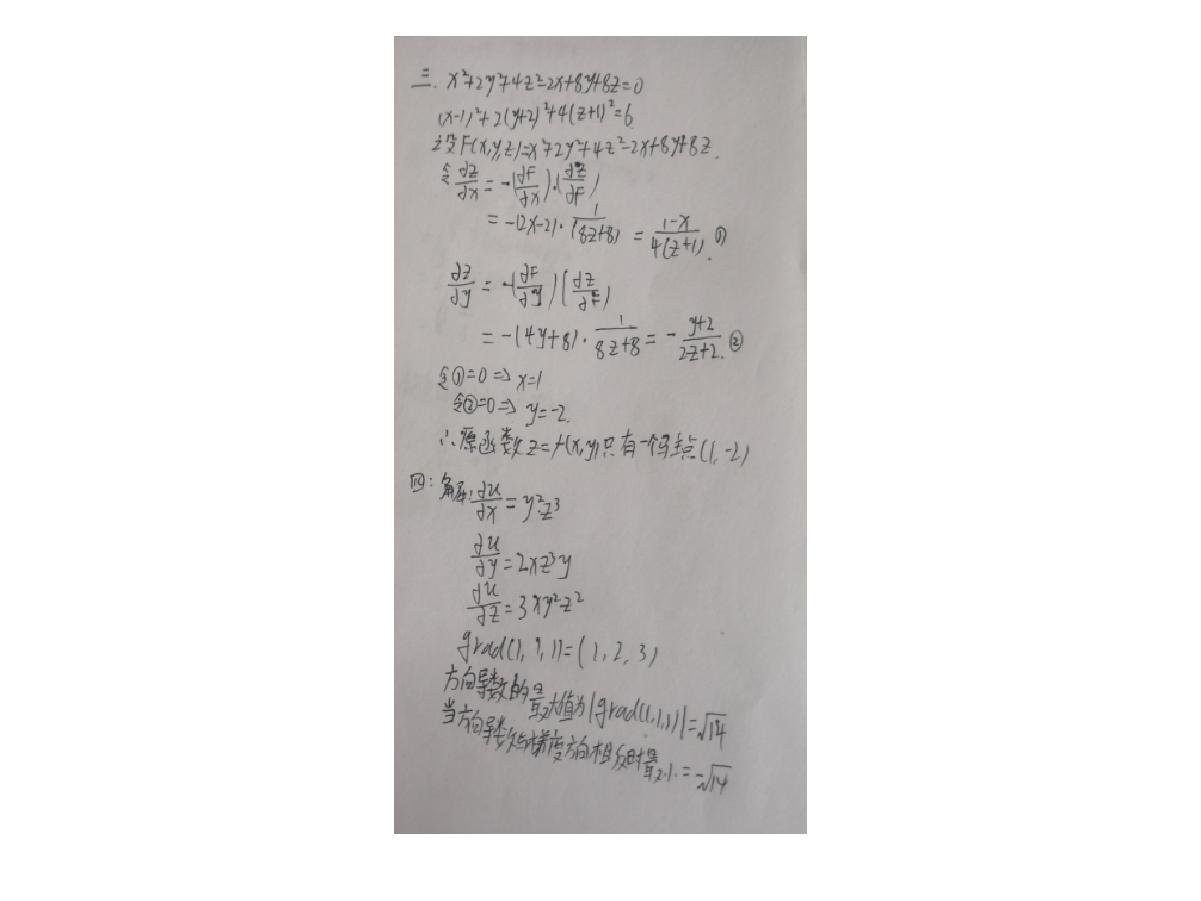 三. x²+2y²+4z²-2x+8y+8z=0
(x-1)²+2(y+2)²+4(z+1)²=6
设F(x,y,z)=x²+2y²+4z²-2x+8y+8z.
令∂z/∂x = -(∂F/∂x)·(∂z/∂F)
= -(2x-2)·1/(8z+8) = (1-x)/4(z+1). ①
∂z/∂y = -(∂F/∂y)(∂z/∂F)
= -(4y+8)·1/8z+8 = -y+2/2z+2. ②
令①=0⇒x=1
令②=0⇒y=-2.
∴原函数z=f(x,y)只有一个驻点(1,-2)
四:解:∂u/∂x=y²z³
∂u/∂y=2xz³y
∂u/∂z=3xy²z²
grad(1,1,1)=(1,2,3)
方向导数的最大值为|grad(1,1,1)|=√14
当方向导数与梯度方向相反时最小=-√14